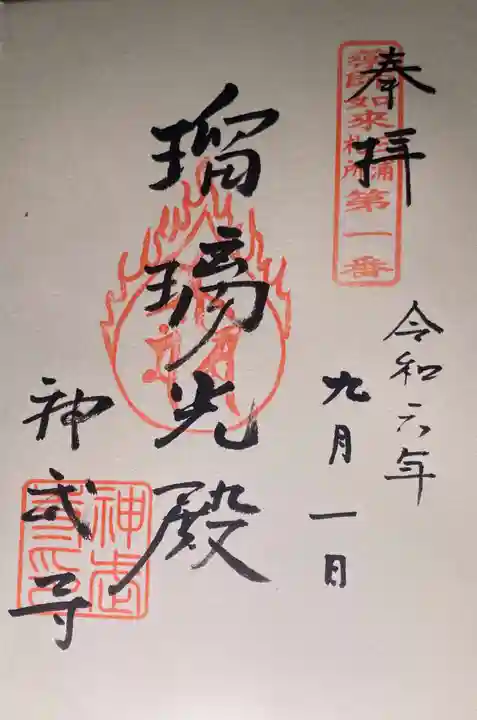 奉拝
薬師如来
三浦
札所
第一番
令和六年
九月一日
瑠璃光殿
神武寺
神武
寺印